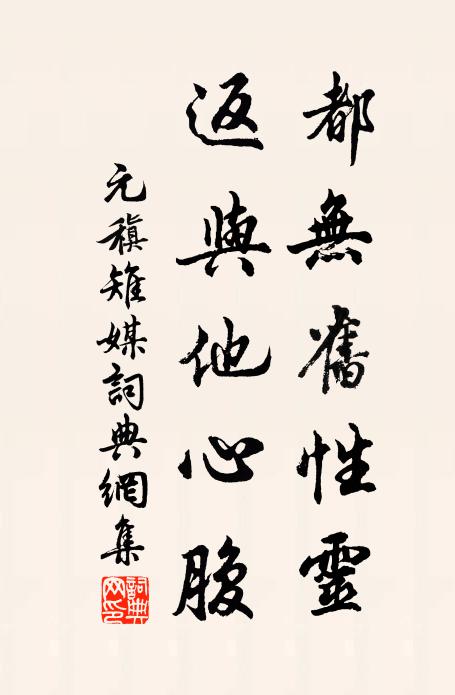 都無舊性靈
返與他心腹
元稹雉媒詞典網集
詞典网印